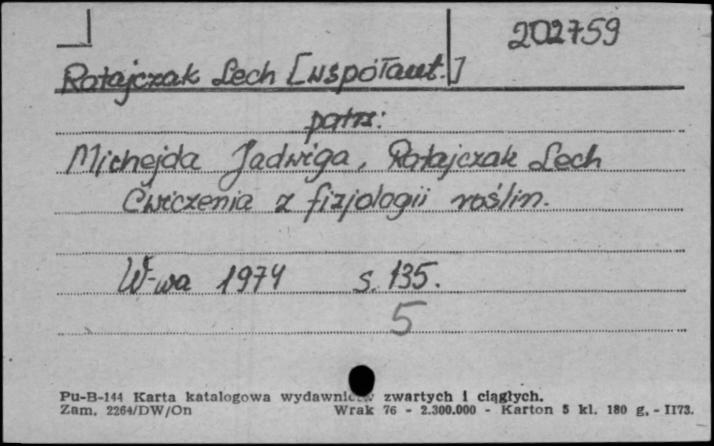 202759
Ratajczak Lech [współaut.]
patrz:
Michejda Jadwiga, Ratajczak Lech
Ćwiczenia z fizjologii roślin.
W-wa 1974 s. 135.
5
Pu-B-144 Karta katalogowa wydawnictw zwartych i ciągłych.
Zam. 2264/DW/On Wrak 76 - 2.300.000 - Karton 5 kl. 180 g. - II73.